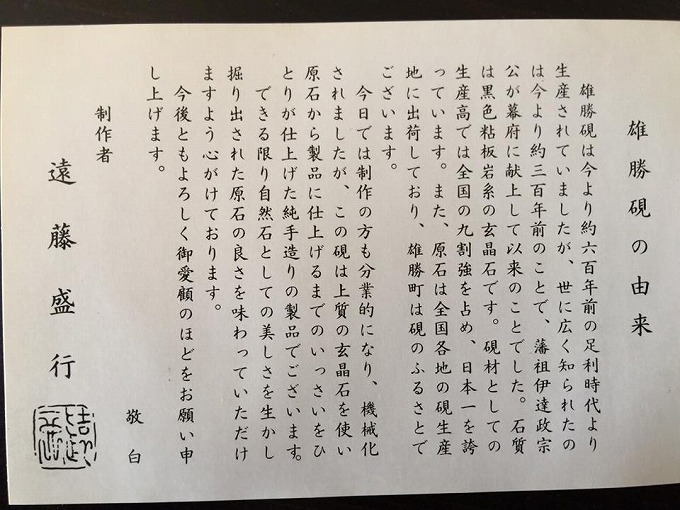 雄勝硯の由来
雄勝硯は今より約六百年前の足利時代より
生産されていましたが、世に広く知られたの
は今より約三百年前のことで、藩祖伊達政宗
公が幕府に献上して以来のことでした。石質
は黒色粘板岩系の玄晶石です。硯材としての
生産高では全国の九割強を占め、日本一を誇
っています。また、原石は全国各地の硯生産
地に出荷しており、雄勝町は硯のふるさとで
ございます。
今日では制作の方も分業的になり、機械化
されましたが、この硯は上質の玄晶石を使い
原石から製品に仕上げるまでのいっさいをひ
とりが仕上げた純手造りの製品でございます。
できる限り自然石としての美しさを生かし
掘り出された原石の良さを味わっていただけ
ますよう心がけております。
今後ともよろしく御愛顧のほどをお願い申
し上げます。
敬白
制作者
遠藤盛行